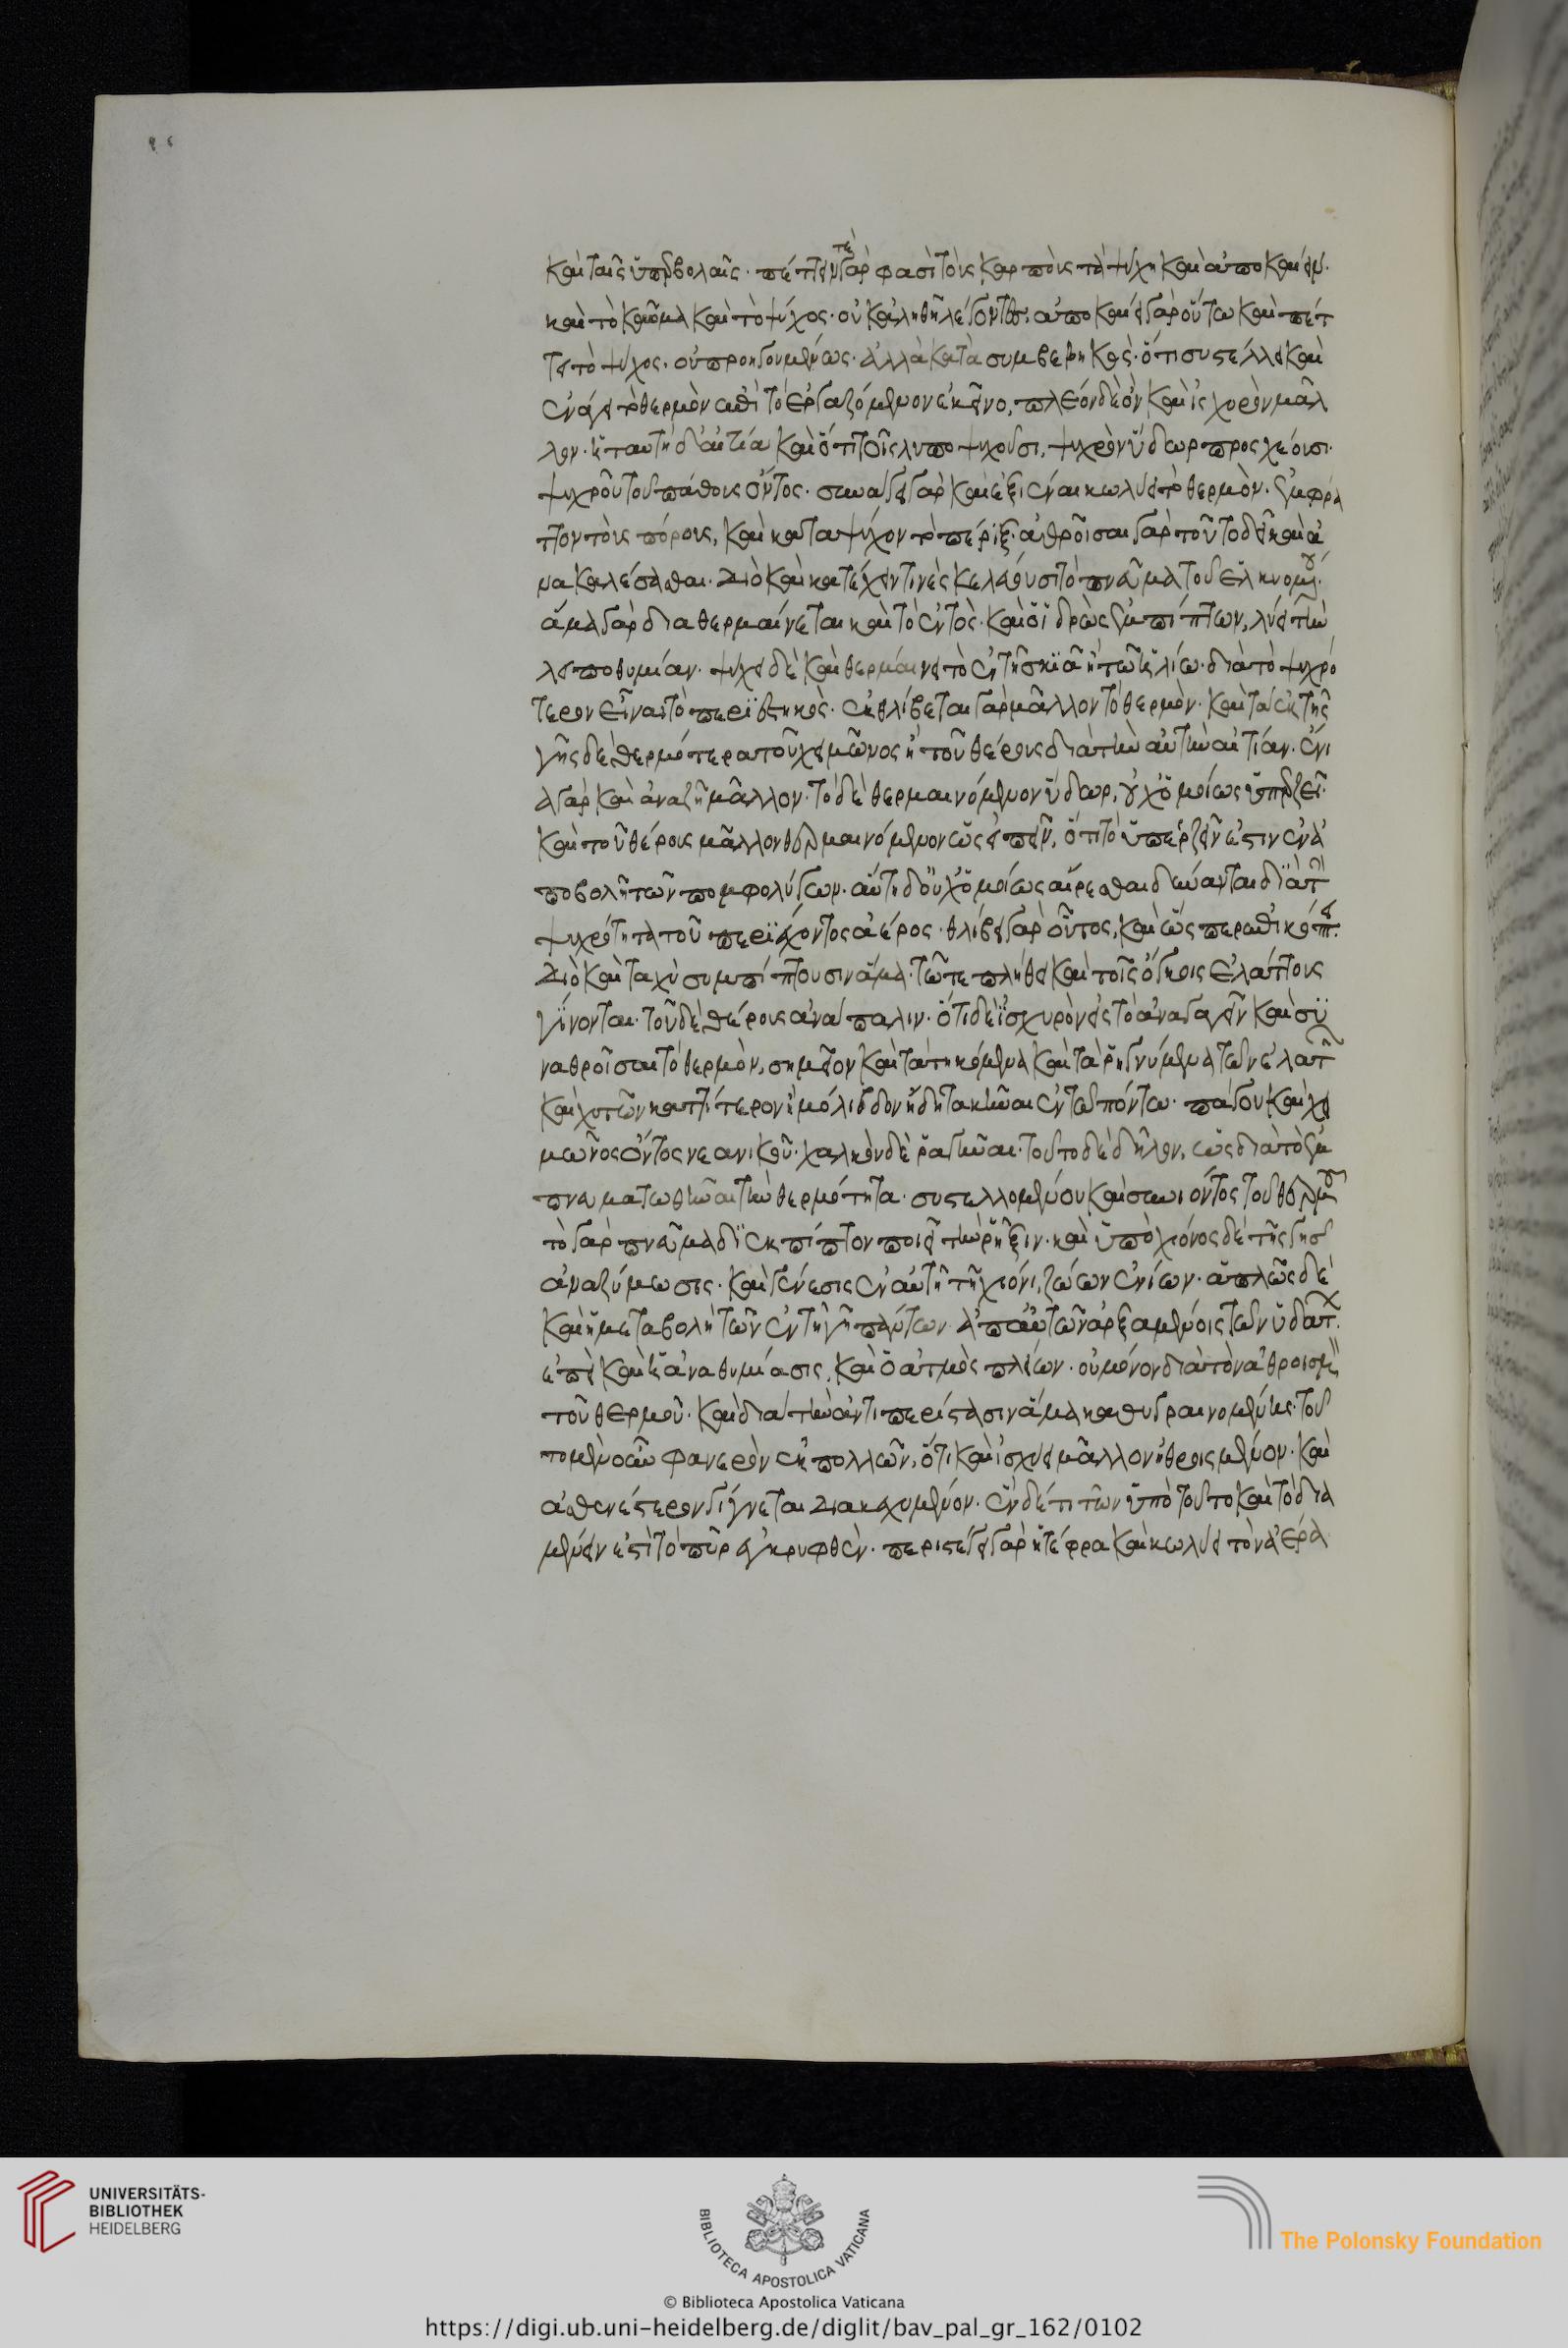 καὶ ταῖς ὑπερβολαῖς. πέττειν τὲ γὰρ φασὶ τοὺς καρποὺς τὰ ψύχη καὶ ἀποκαίειν.
καὶ τὸ καῦμα καὶ τὸ ψύχος. οὐκ ἀληθῆ λέγοντες, ἀποκαίει γὰρ οὕτω καὶ πέτ
τει τὸ ψύχος. οὐ προηγουμένως. ἀλλὰ κατὰ συμβεβηκὸς. ὅτι συστέλλει καὶ
συνάγει τὸ θερμὸν ἐπεὶ τὸ ἐργαζόμενον ἐκεῖνο, πλέον δὲ ὂν καὶ ἰσχυρὸν μᾶλ
λον. ἡ ταυτὴ δ' αἰτία καὶ ὅτι τοῖς λυποψυχοῦσι, ψυχρὸν ὕδωρ προσχέουσι.
ψυχροῦ τοῦ πάθους ὄντος. συνάγει γὰρ καὶ ἐξιέναι κωλύει τὸ θερμὸν. ἐμφρά
ττον τοὺς πόρους, καὶ καταψύχον τὸ πέριξ. ἀθροῖσαι γὰρ τοῦτο δεῖ καὶ ἀ
νακαλέσασθαι. διὸ καὶ κατέχειν τινὲς κελεύουσι τὸ πνεῦμα τοῦ ἑλκνομένου.
ἅμα γὰρ διαθερμαίνεται καὶ τὸ ἐντὸς. καὶ ὁ ἱδρὼς ἐμπίπτων, λύει τὴν
λειποθυμίαν. ψύχει δὲ καὶ θερμαίνει τὸ ἐν τῇ σκιᾷ ἢ τῶ ἡλίω. διὰ τὸ ψυχρό
τερον εἶναι τὸ περϊεστηκὸς. ἐκθλίβεται γὰρ μᾶλλον τὸ θερμὸν. καὶ τὰ ἐκ τῆς
γῆς δὲ θερμότερα τοῦ χειμῶνος ἢ τοῦ θέρους διὰ τὴν αὐτὴν αἰτίαν. ἔνι
α γὰρ καὶ ἀναζεῖ μᾶλλον. τὸ δὲ θερμαινόμενον ὕδωρ, οὐχ ὁμοίως ὑπερζεῖ.
καὶ τοῦ θέρους μᾶλλον θερμαινόμενον ὡς εἰπεῖν, ὅτι τὸ ὑπερζεῖν ἐστιν ἐν ἀ
ποβολῇ τῶν πομφολύγων. αὕτη δ' οὐχ ὁμοίως αἴρεσθαι δύνανται διὰ τὴν
ψυχρότητα τοῦ περϊέχοντος ἀέρος. θλίβει γὰρ οὗτος, καὶ ὥς περ ἐπικόπτει.
διὸ καὶ ταχὺ συμπίπτουσιν ἅμα. τῶ τε πλήθει καὶ τοῖς ὄγκοις ἐλάττους
γίνονται. τοῦ δὲ θέρους ἀνάπαλιν. ὅτι δὲ ἰσχυρὸν εἰς τὸ ἀναγαγεῖν καὶ συ
ναθροῖσαι τὸ θερμὸν, σημεῖον καὶ τὰ τηκόμενα καὶ τὰ ῥηγνύμενα τῶν ἐλατῶν
καὶ χυτῶν καττίτερον ἢ μόλιβδον ἤδη τακῆναι ἐν τῶ πόντω. πάγου καὶ χει
μῶνος ὄντος νεανικοῦ. χαλκὸν δὲ ῥαγῆναι. τοῦτο δὲ δῆλον, ὡς διὰ τὸ ἐμ
πνευματωθῆναι τὴν θερμότητα. συστελλομένου καὶ συνιόντος τοῦ θερμοῦ
τὸ γὰρ πνεῦμα δϊεκπίπτον ποιεῖ τὴν ῥῆξιν. καὶ ὑπὸ χιόνος δὲ τῆς γῆς
ἀναζύμωσις. καὶ γένεσις ἐν αὐτῇ τῇ χιόνι, ζώων ἐνίων. ἁπλῶς δὲ
καὶ ἡ μεταβολὴ τῶν ἐν τῇ γῇ πάντων ἀπ' αὐτῶν ἀρξαμένοις τῶν ὑδάτων.
ἐπεὶ καὶ ἡ ἀναθυμίασις, καὶ ὁ ἀτμὸς πλείων. οὐ μόνον διὰ τὸν ἀθροισμὸν
τοῦ θερμοῦ. καὶ διὰ τὴν ἀντιπερίστασιν ἅμα καθυδραινομένης. τοῦ
το μὲν οὖν φανερὸν ἐκ πολλῶν, ὅτι καὶ ἰσχύει μᾶλλον ἠθροισμένον. καὶ
ἀσθενέστερον γίγνεται διακεχυμένον. ἓν δέ τι τῶν ὑπὸ τοῦτο καὶ τὸ δια
μένειν ἐστὶ τὸ πῦρ ἐγκρυφθὲν. περιστέγει γὰρ ἡ τέφρα καὶ κωλύει τὸν ἀέρα
UNIVERSITÄTS-
BIBLIOTHEK
HEIDELBERG
BIBLIOTECA APOSTOLICA VATICANA
The Polonsky Foundation
© Biblioteca Apostolica Vaticana
https://digi.ub.uni-heidelberg.de/diglit/bav_pal_gr_162/0102